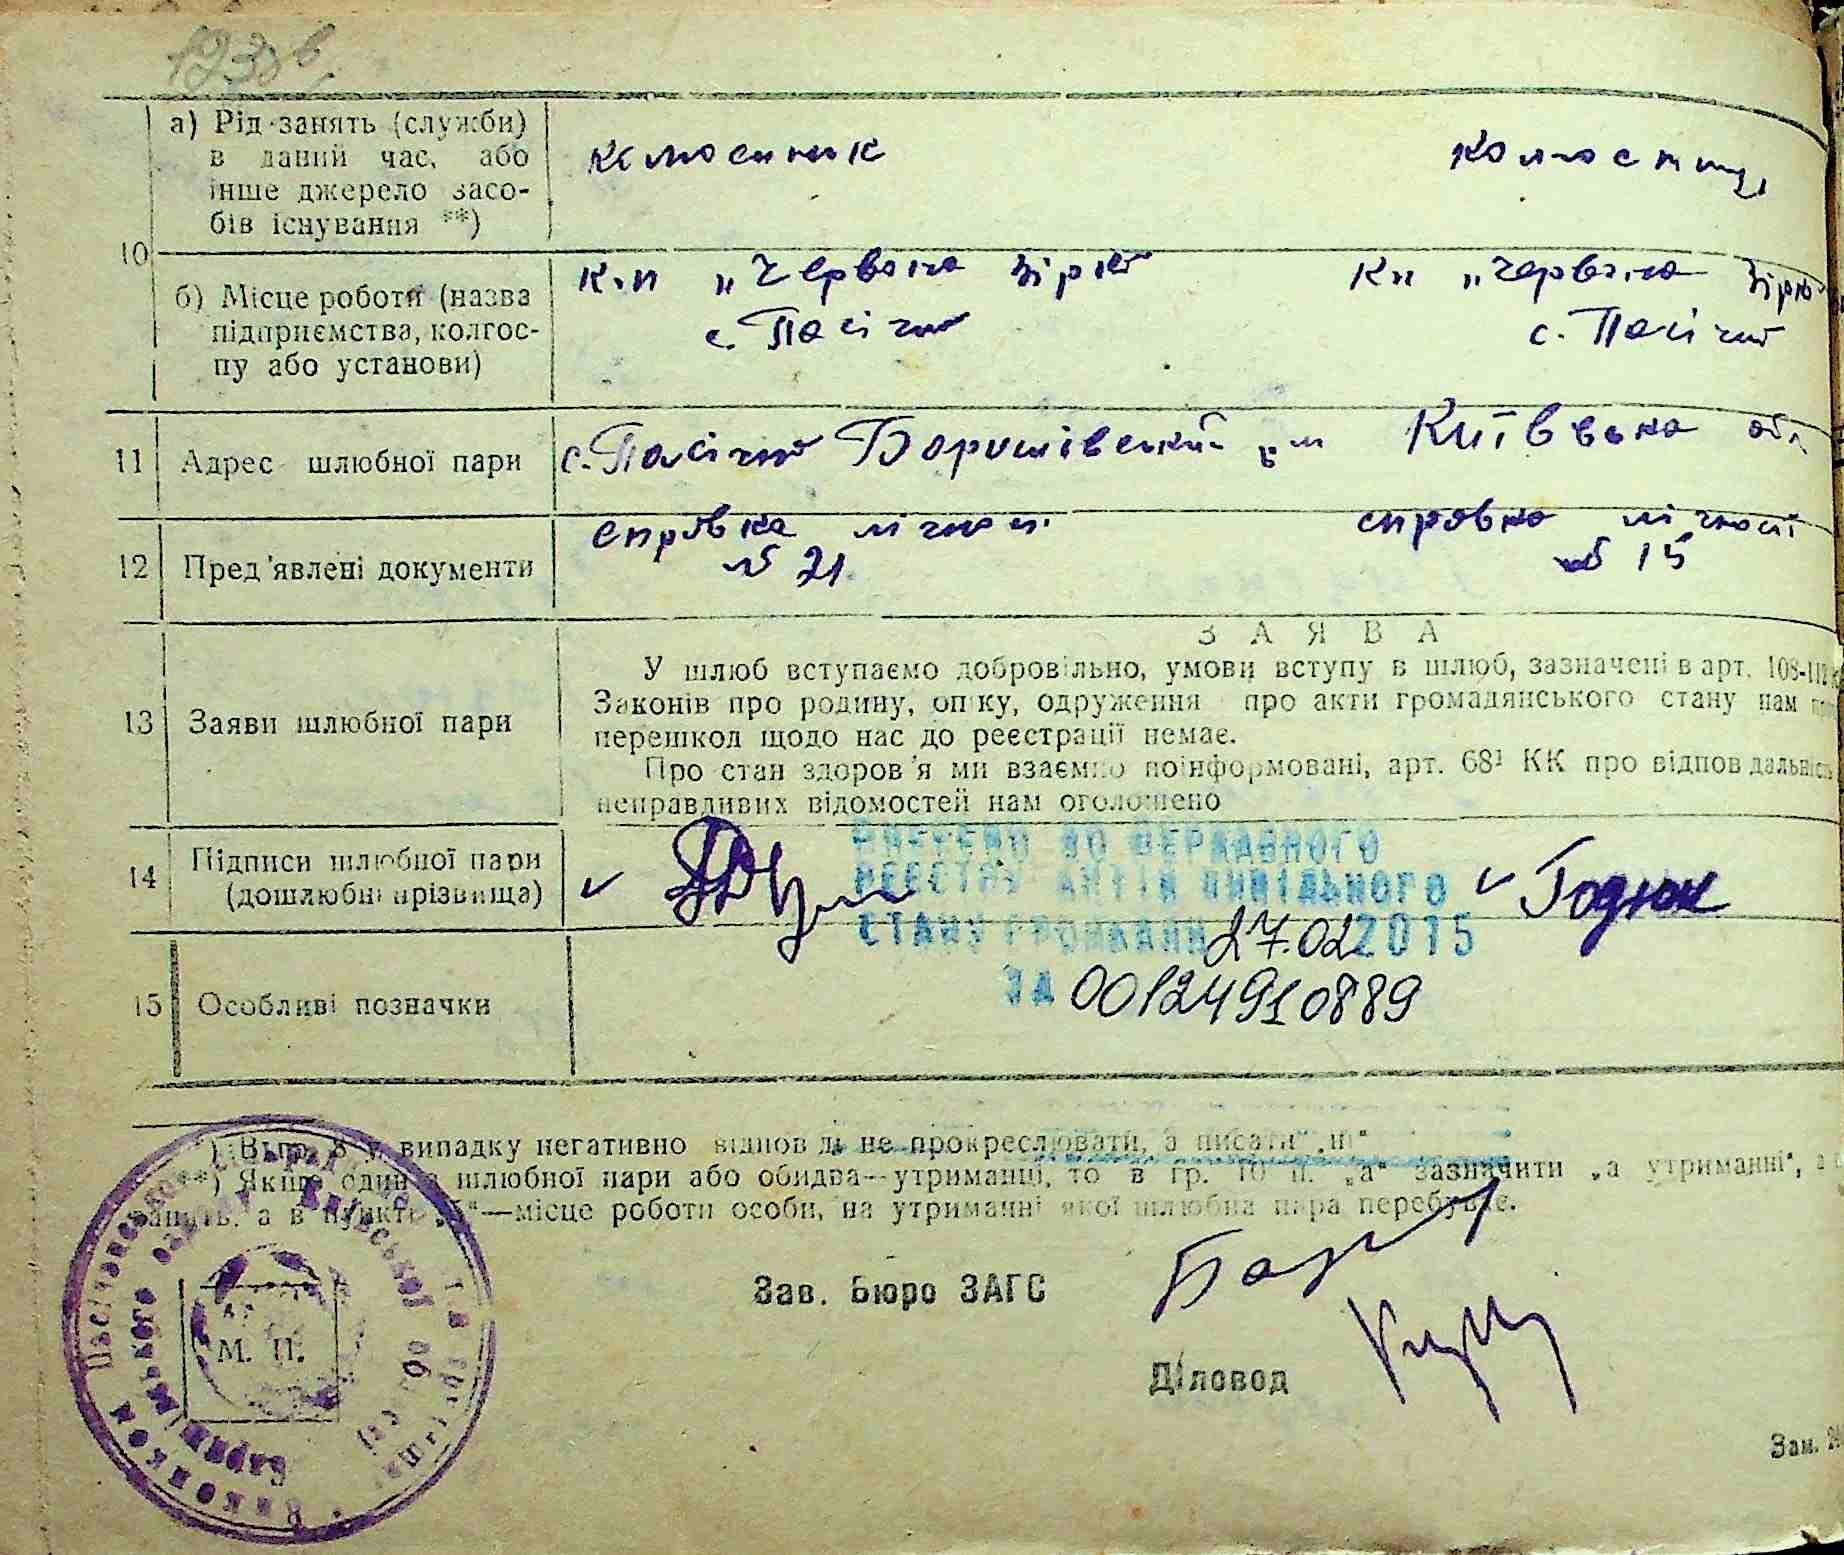 а) Рід занять (служби)
в даний час, або
інше джерело засо-
бів існування **)
10
б) Місце роботи (назва
підприємства, колгос-
пу або установи)
к.п „Червона Зірка
с. Пасічна
кп „Червона Зірка
с. Пасічна
11 Адрес шлюбної пари
с. Пасічна Баришівський Київвька обл
12 Пред'явлені документи
справка
№ 21
справка
№ 15
ЗАЯВА
13 Заяви шлюбної пари
У шлюб вступаємо добровільно, умови вступу в шлюб, зазначені в арт.
Законів про родину, опіку, одруження про акти громадянського стану нам
перешкод щодо нас до реєстрації немає.
Про стан здоров'я ми взаємно поінформовані, арт. 68¹ КК про
неправдивих відомостей нам оголошено
14 Підписи шлюбної пари
(дошлюбні прізвища)
Годюк
ВНЕСЕНО ДО ДЕРЖАВНОГО
РЕЄСТРУ АКТІВ ЦИВІЛЬНОГО
СТАНУ ГРОМАДЯН 27.02 2015
ЗА 00124910889
15 Особливі позначки
*) В гр. 8 у випадку негативно відповіді не прокреслювати, а писати „ні“
**) Якщо один з шлюбної пари або обидва—утриманці, то в гр. 10 п. „а“ зазначити „а утриманні“,
а в пункті „б“—місце роботи особи, на утриманні якої шлюбна пара перебуває.
Зав. Бюро ЗАГС
М. П.
Діловод
Виконком
Київської області
Зам.